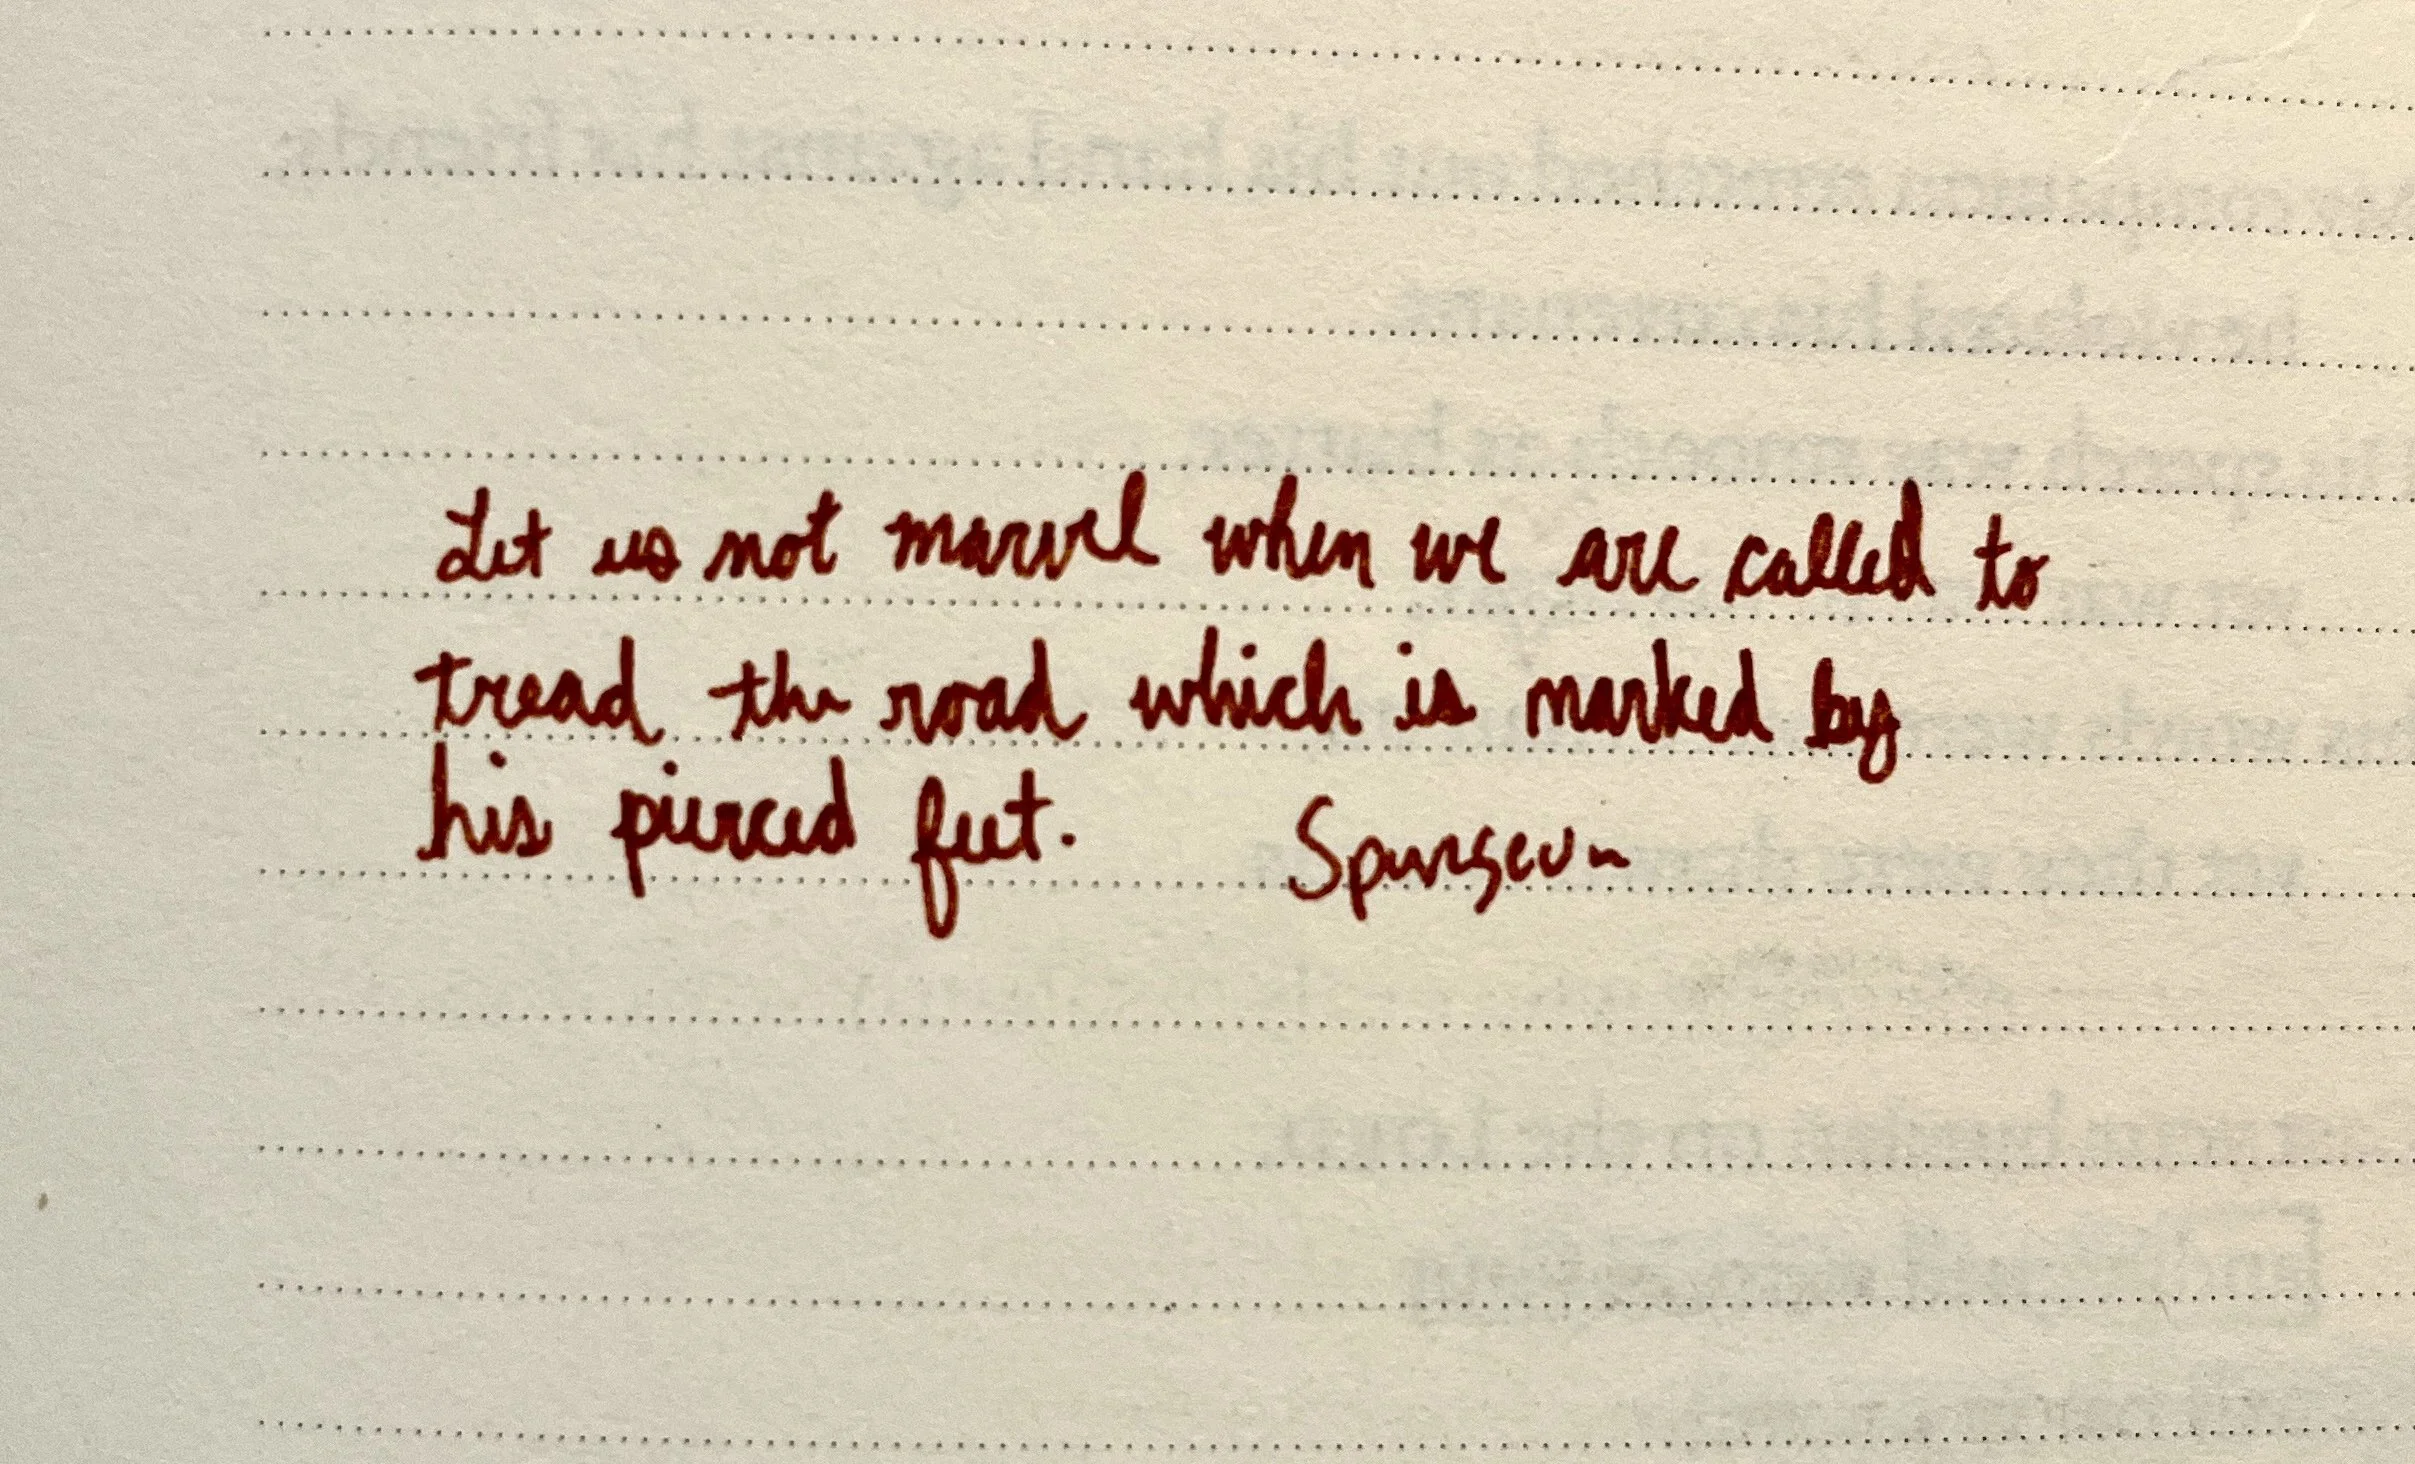 Let us not marvel when we are called to
tread the road which is marked by
his pierced feet. Spurgeon